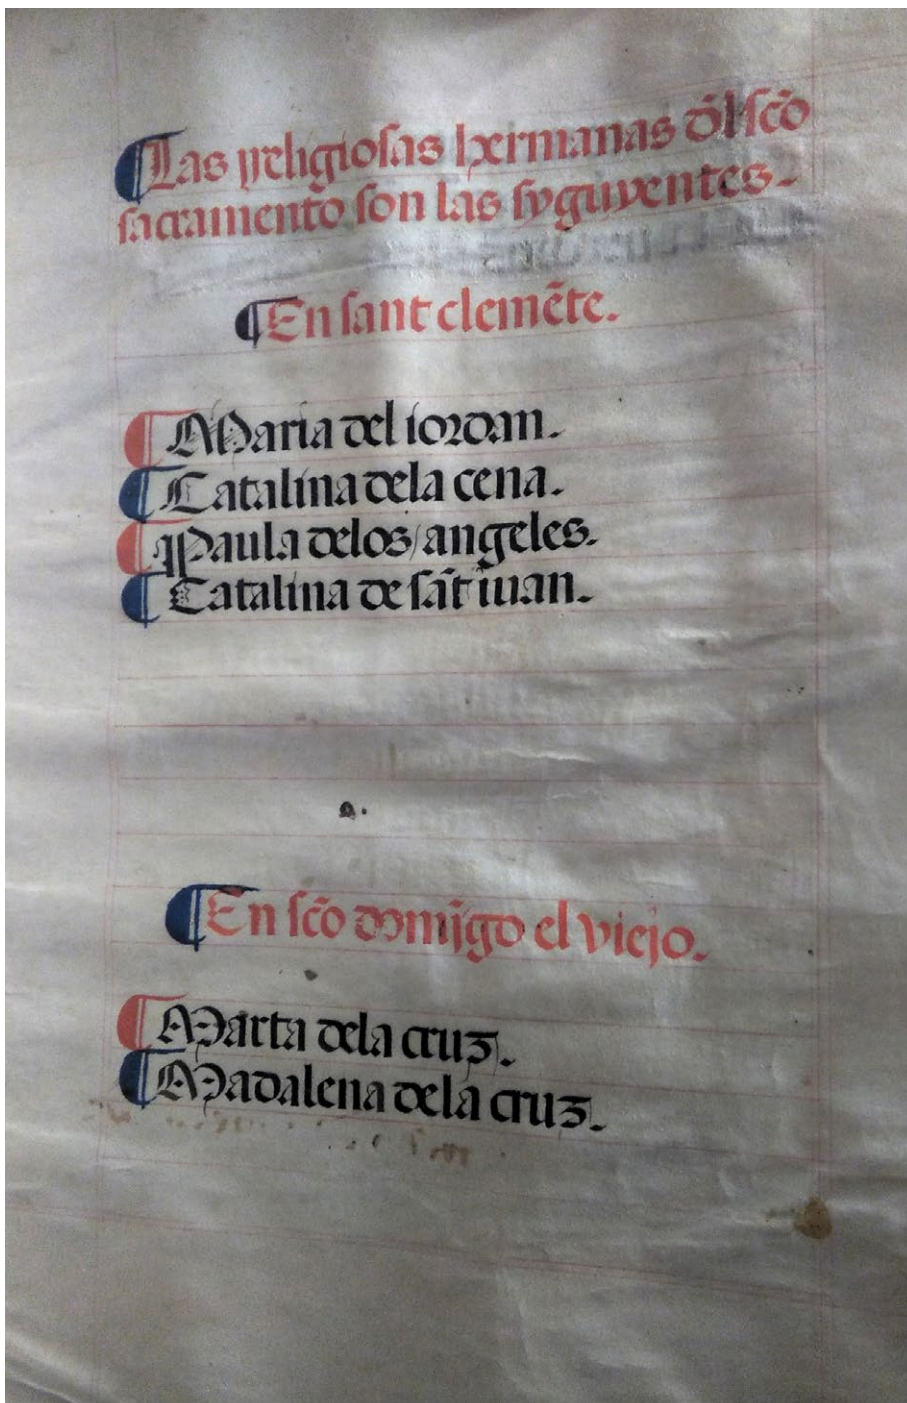 ¶ Las rreligiosas hermanas d̄l sc̄o
sacramento son las syguyentes.
¶ En sant clemēte.
¶ Maria del iordan.
¶ Catalina dela cena.
¶ Paula delos angeles.
¶ Catalina de sāt iuan.
¶ En sc̄o domī̄go el viejo.
¶ Marta dela cruz.
¶ Madalena dela cruz.